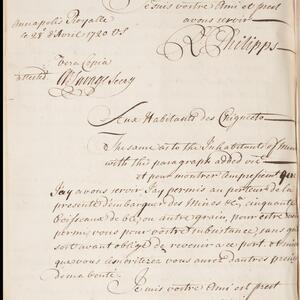 Je suis vostre Ami et prest
a vous servir
Annapolis Royalle
le 28e d'Avril 1720 V:S
R Philipps
Vera Copia
attested
Secry
Aux Habitants des Chignecto
The same as to the Inhabitants of
with this paragraph added viz
et pour montrer l'empressem't que
J'ay a vous servir J'ay permis au porteur de la
presente d'embarquer des Mines &ca. cinquante
Boisseaux de bled, ou autre grain, pour être
permi vous pour vôstre subsistance, sans qu'il
soit avant obligé de revenir a ce port, et
que vous aurez d'autres
de ma bonté.
Je suis vostre Ami et prest